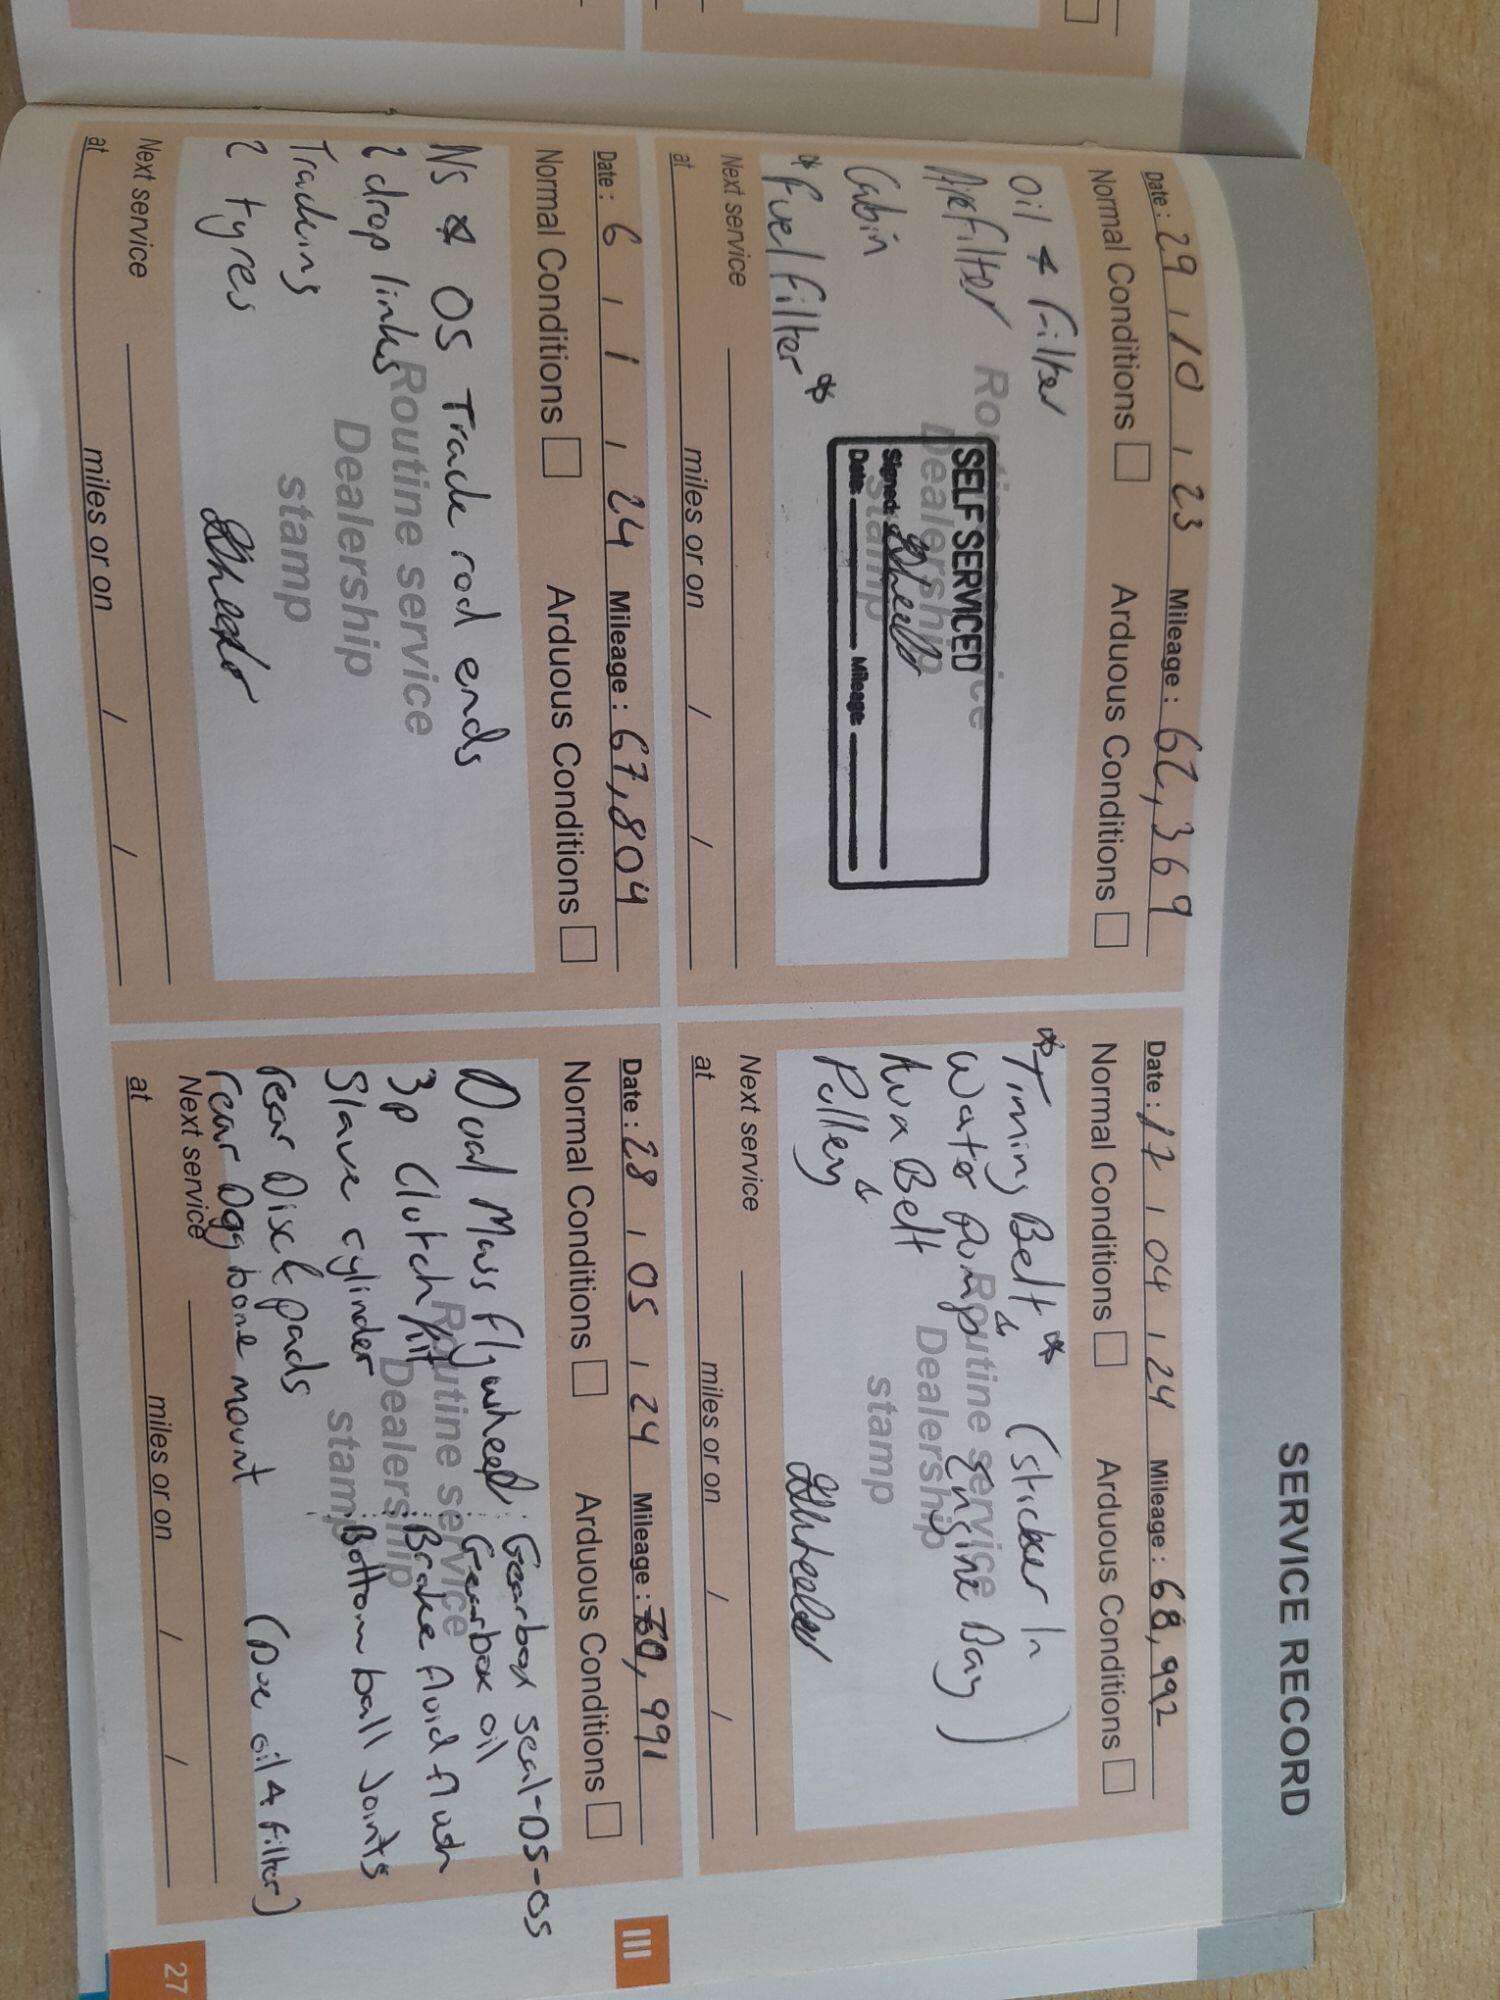 SERVICE RECORD
Date: 29 / 10 / 23 Mileage: 62,369
Normal Conditions Arduous Conditions
Oil & Filter
Airfilter
Cabin
*Fuel filter*
Routine service
Dealership
stamp
SELF SERVICED
Signed:
Date: Mileage
Next service
at miles or on / /
Date: 17 / 04 / 24 Mileage: 68,992
Normal Conditions Arduous Conditions
*Timing Belt* (Sticker In
Water Pump & Engine Bay)
Aux Belt &
Pulley
Routine service
Dealership
stamp
Next service
at miles or on / /
Date: 6 / 1 / 24 Mileage: 67,804
Normal Conditions Arduous Conditions
NS & OS Track rod ends
2 drop links
Tracking
2 tyres
Routine service
Dealership
stamp
Next service
at miles or on / /
Date: 28 / 05 / 24 Mileage: 70,991
Normal Conditions Arduous Conditions
Dual Mass flywheel : Gearbox seal-DS-OS
3p Clutch kit : Gearbox oil
Slave cylinder : Brake fluid flush
rear Disc & pads : Bottom ball Joints
rear Dogg bone mount (Due oil & filter)
Routine service
Dealership
stamp
Next service
at miles or on / /
III
27